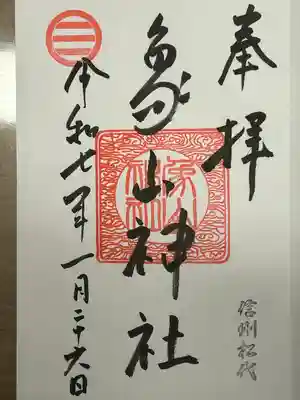 奉拝
信州松代
象山神社
令和七年一月二十六日